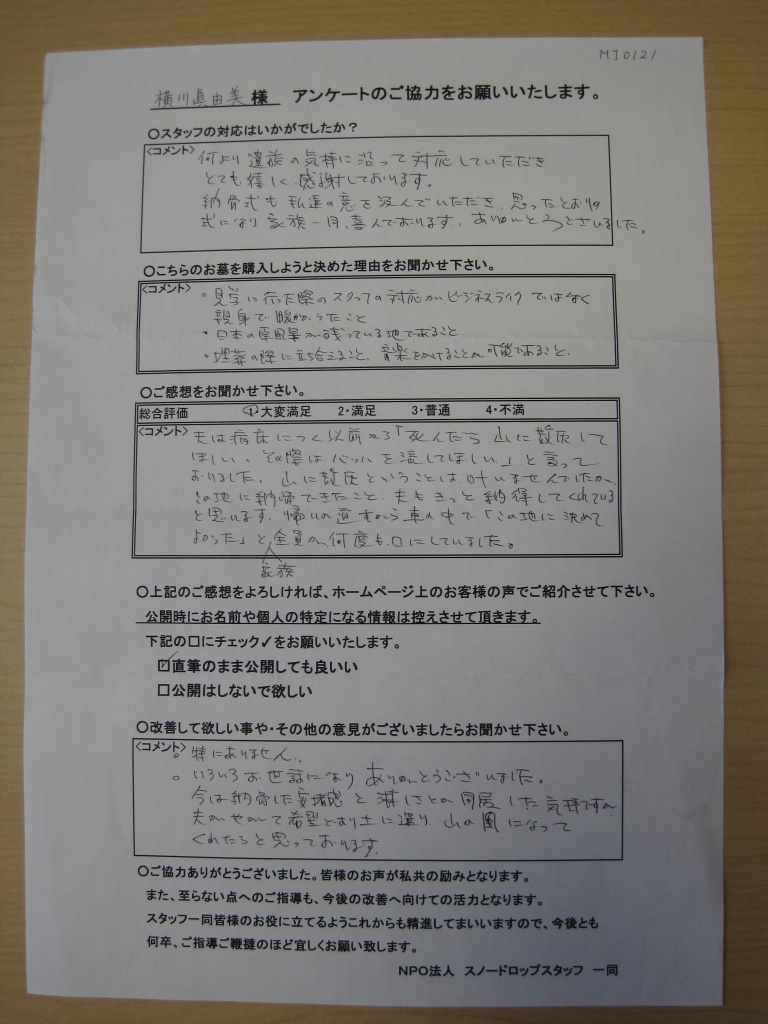 MJ0121
横川眞由美様 アンケートのご協力をお願いいたします。
○スタッフの対応はいかがでしたか？
<コメント>
何より遺族の気持に沿って対応していただき
とても嬉しく感謝しております。
納骨式も私達の意を汲んでいただき、思ったとおりの
式になり家族一同、喜んでおります。ありがとうございました。
○こちらのお墓を購入しようと決めた理由をお聞かせ下さい。
<コメント>
・見学に行った際のスタッフの対応がビジネスライクではなく
親身で暖かかったこと
・日本の原風景が残っている地であること
・埋葬の際に立ち合えること、音楽をかけることが可能であること.
○ご感想をお聞かせ下さい。
総合評価 ①大変満足 2・満足 3・普通 4・不満
<コメント>
夫は病床につく以前から「死んだら山に散灰して
ほしい、その際はバッハを流してほしい」と言って
おりました。山に散灰ということは叶いませんでしたが
この地に納骨できたこと、夫もきっと納得してくれている
と思います。帰りの道すがら車の中で「この地に決めて
よかった」と家族全員が何度も口にしていました。
○上記のご感想をよろしければ、ホームページ上のお客様の声でご紹介させて下さい。
公開時にお名前や個人の特定になる情報は控えさせて頂きます。
下記の□にチェック✓をお願いいたします。
☑直筆のまま公開しても良いい
□公開はしないで欲しい
○改善して欲しい事や・その他の意見がございましたらお聞かせ下さい。
<コメント>
○ 特にありません.
○ いろいろお世話になりありがとうございました。
今は納骨した安堵感と淋しさとが同居した気持ですが
夫がやがて希望どおり土に還り、山の風になって
くれたらと思っております.
○ご協力ありがとうございました。皆様のお声が私共の励みとなります。
また、至らない点へのご指導も、今後の改善へ向けての活力となります。
スタッフ一同皆様のお役に立てるようこれからも精進してまいいますので、今後とも
何卒、ご指導ご鞭撻のほど宜しくお願い致します。
NPO法人 スノードロップスタッフ 一同